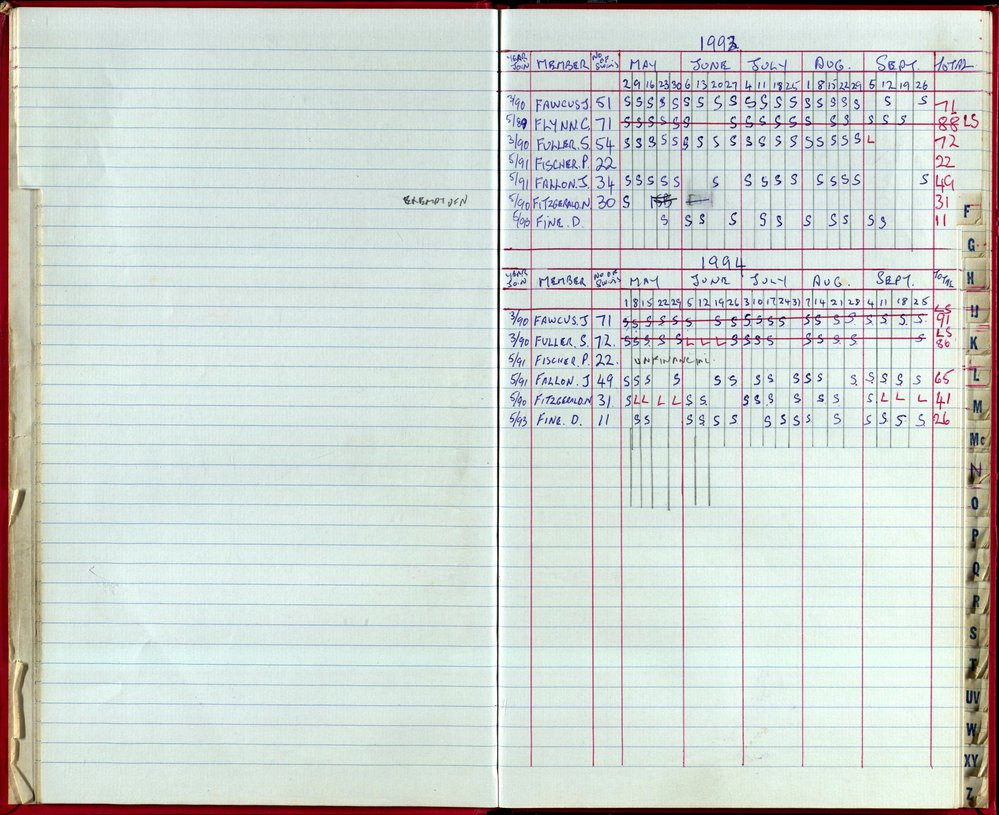 1993
YEAR JOIN MEMBER NO OF SWIMS MAY JUNE JULY AUG. SEPT. TOTAL
2 9 16 23 30 6 13 20 27 4 11 18 25 1 8 15 22 29 5 12 19 26
3/90 FAWCUS J. 51 S S S S S S S S S S S S S S S S S S S S 71
5/89 FLYNN. C. 71 S S S S S S S S S S S S S S S S S S 88 LS
3/90 FULLER. S. 54 S S S S S S S S S S S S S S S S S S L 72
5/91 FISCHER. P. 22 22
5/91 FALLON. J. 34 S S S S S S S S S S S S S S S 49
5/90 FITZGERALD. N. 30 S 31
5/93 FINE. D. S S S S S S S S S S S 11
1994
YEAR JOIN MEMBER NO OF SWIMS MAY JUNE JULY AUG. SEPT. TOTAL
1 8 15 22 29 5 12 19 26 3 10 17 24 31 7 14 21 28 4 11 18 25
3/90 FAWCUS. J 71 S S S S S S S S S S S S S S S S S S S S LS 91
3/90 FULLER. S. 72. S S S S S L L L S S S S S S S S S LS 86
5/91 FISCHER. P. 22. UNFINANCIAL.
5/91 FALLON. J 49 S S S S S S S S S S S S S S S S 65
5/90 FITZGERALD N 31. S L L L L S S S S S S S S S S L L L 41
5/93 FINE. D. 11 S S S S S S S S S S S S S S S 26
F
G
H
IJ
K
L
M
Mc
N
O
P
Q
R
S
T
UV
W
XY
Z